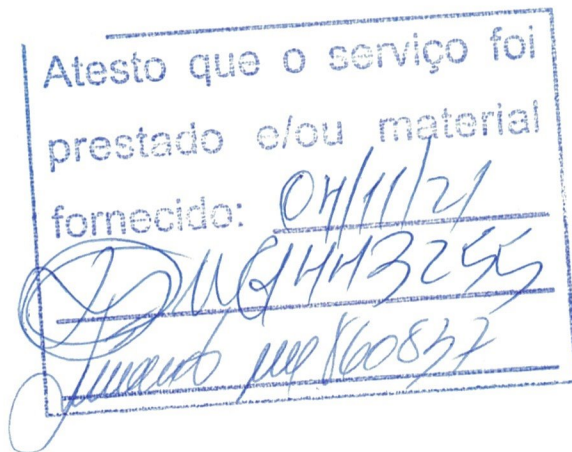 Atesto que o serviço foi
prestado e/ou material
fornecido: 04/11/21
MG1443255